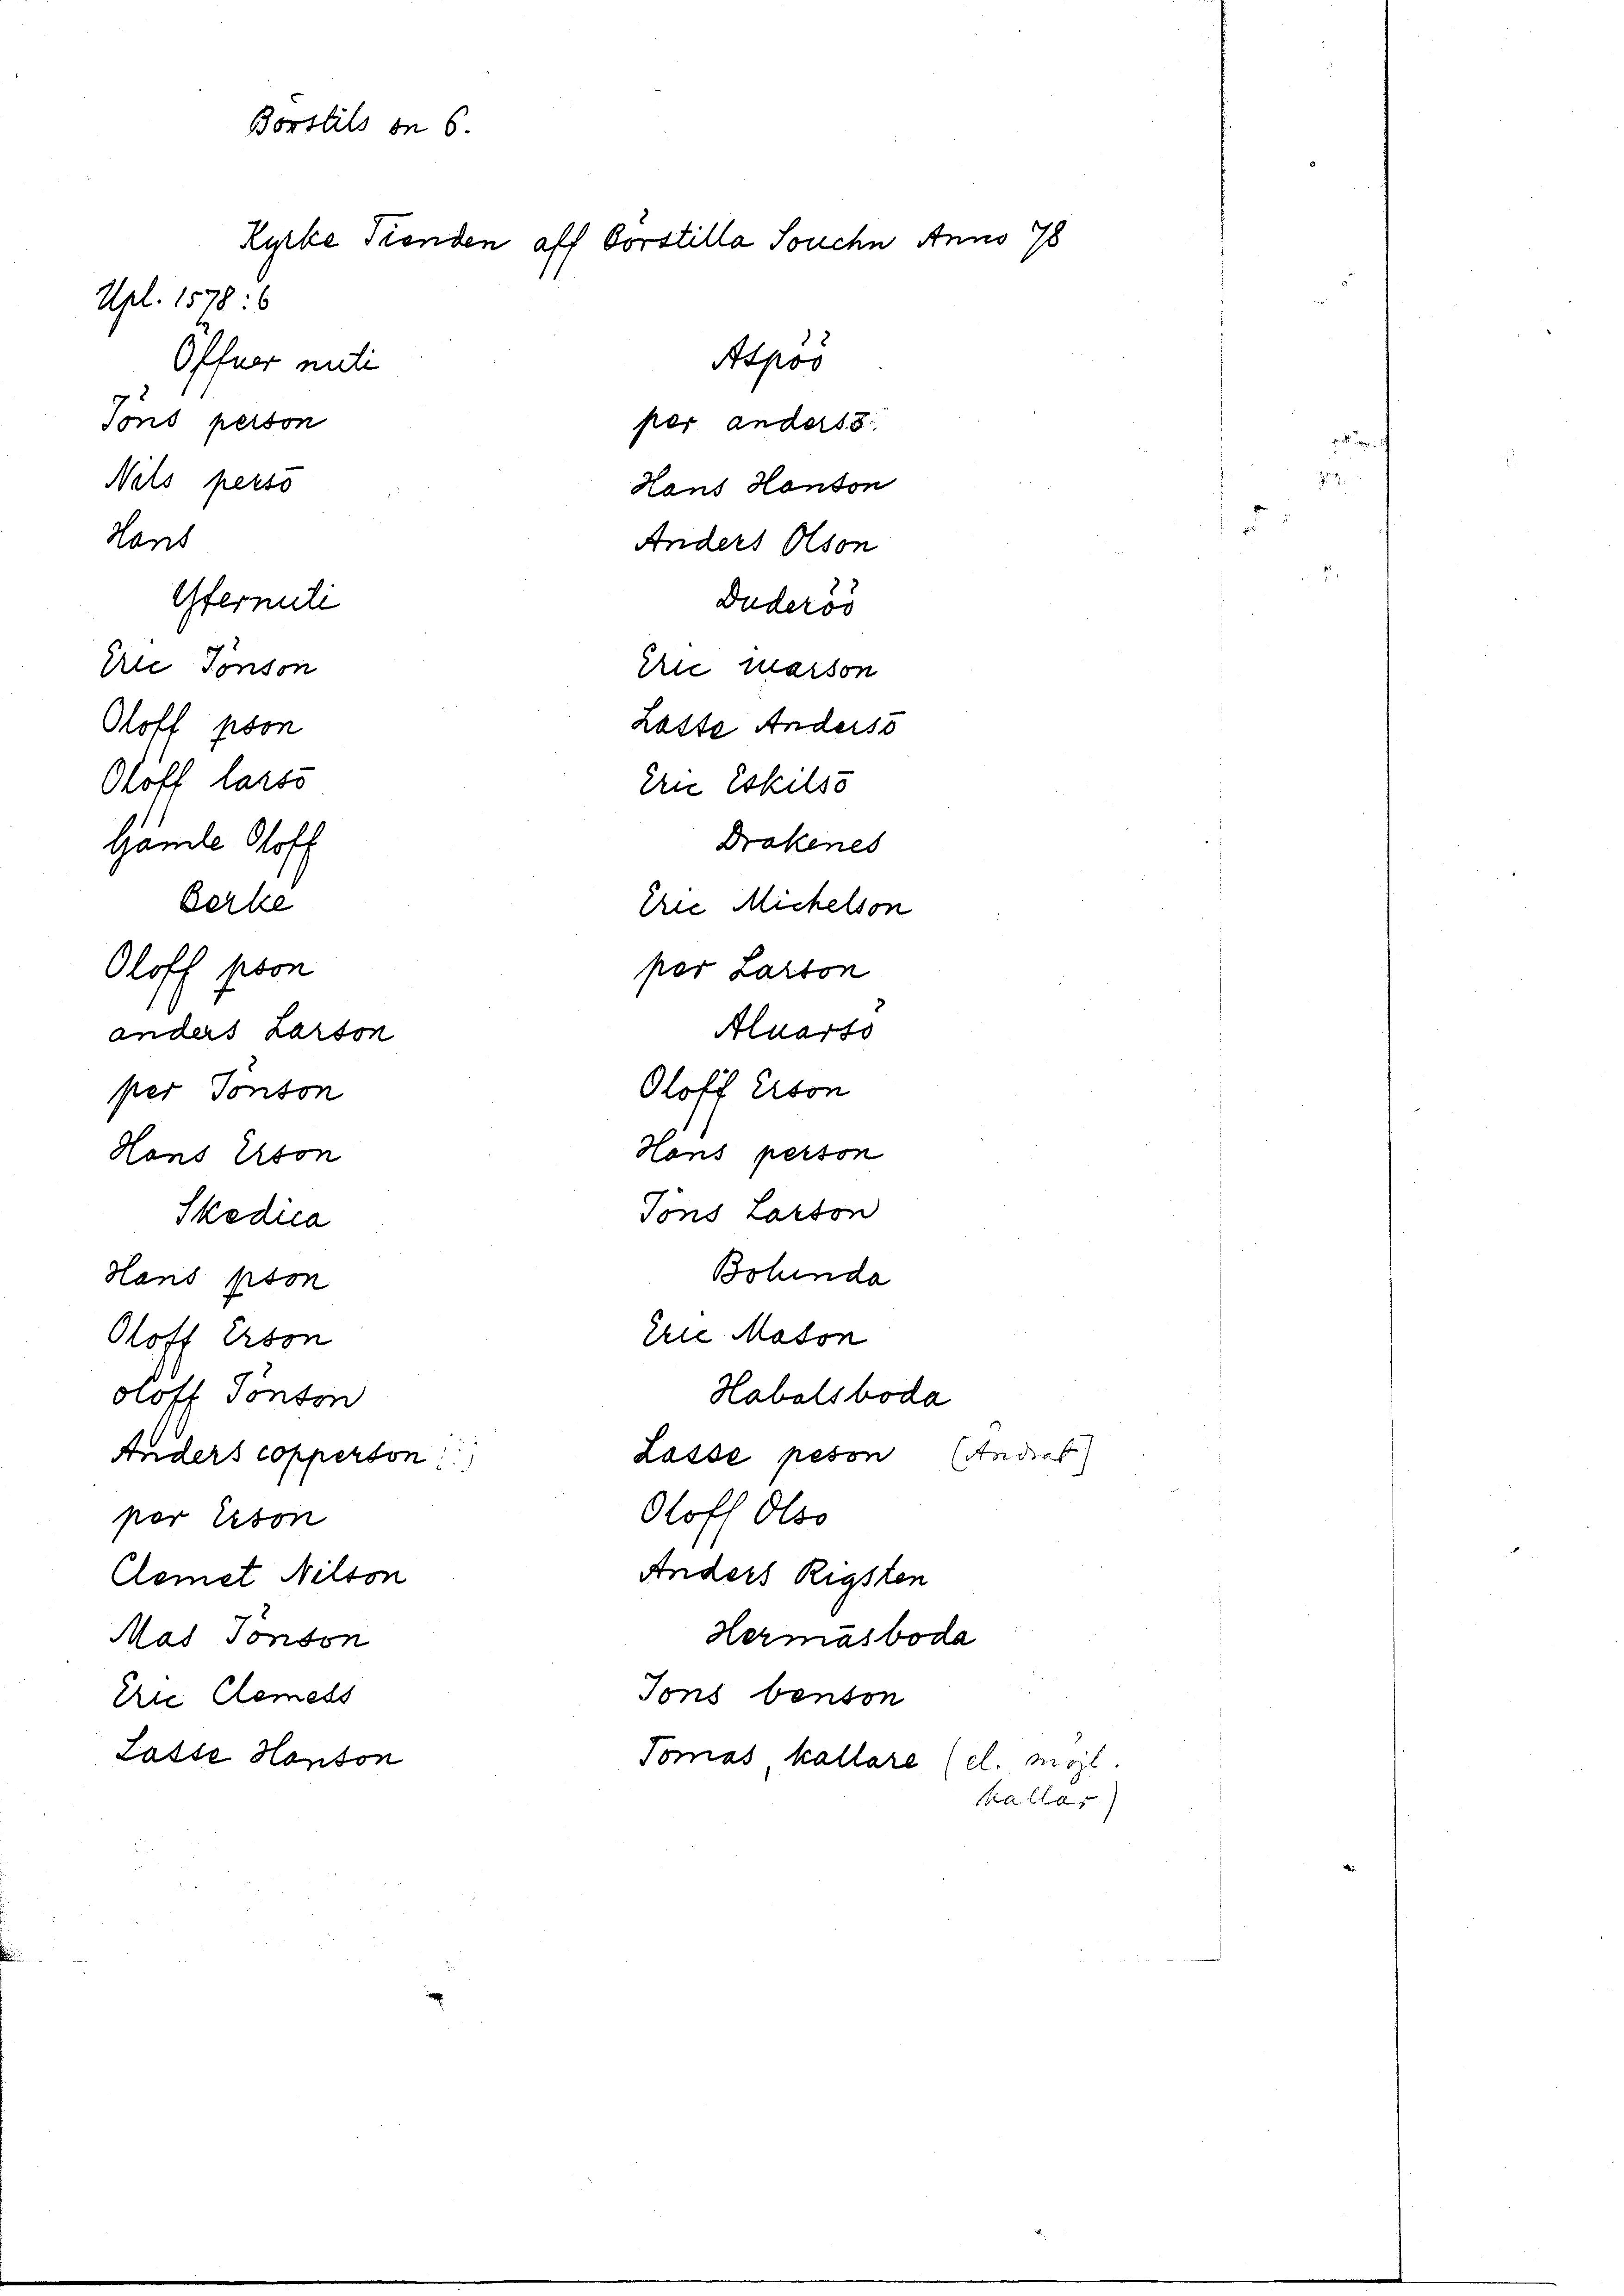 Börstils sn 6.
Kyrke Tienden aff börstilla Souchn Anno 78
Upl. 1578:6
Öffuer nuti
Jöns person
Nils persō
Hans
Yfernuti
Eric Jönson
Oloff pson
Oloff larsō
Gamle Oloff
Berke
Oloff pson
anders Larson
per Jönson
Hans Erson
Skedica
Hans pson
Oloff Erson
oloff Jönson
Anders copperson
per Erson
Clemet Nilson
Mas Jönson
Eric Clemets
Lasse Hanson
Aspöö
per andersō
Hans Hanson
Anders Olson
Duderöö
Eric marson
Lasse Andersō
Eric Eskilsō
Drakenes
Eric Michelson
per Larson
Aluarsö
Oloff Erson
Hans person
Jöns Larson
Bolunda
Eric Mason
Habalsboda
Lasse peson (Andreas)
Oloff Olso
Anders Rigsten
Hermāsboda
Jons benson
Tomas, kallare (el. möjl.
kallar)